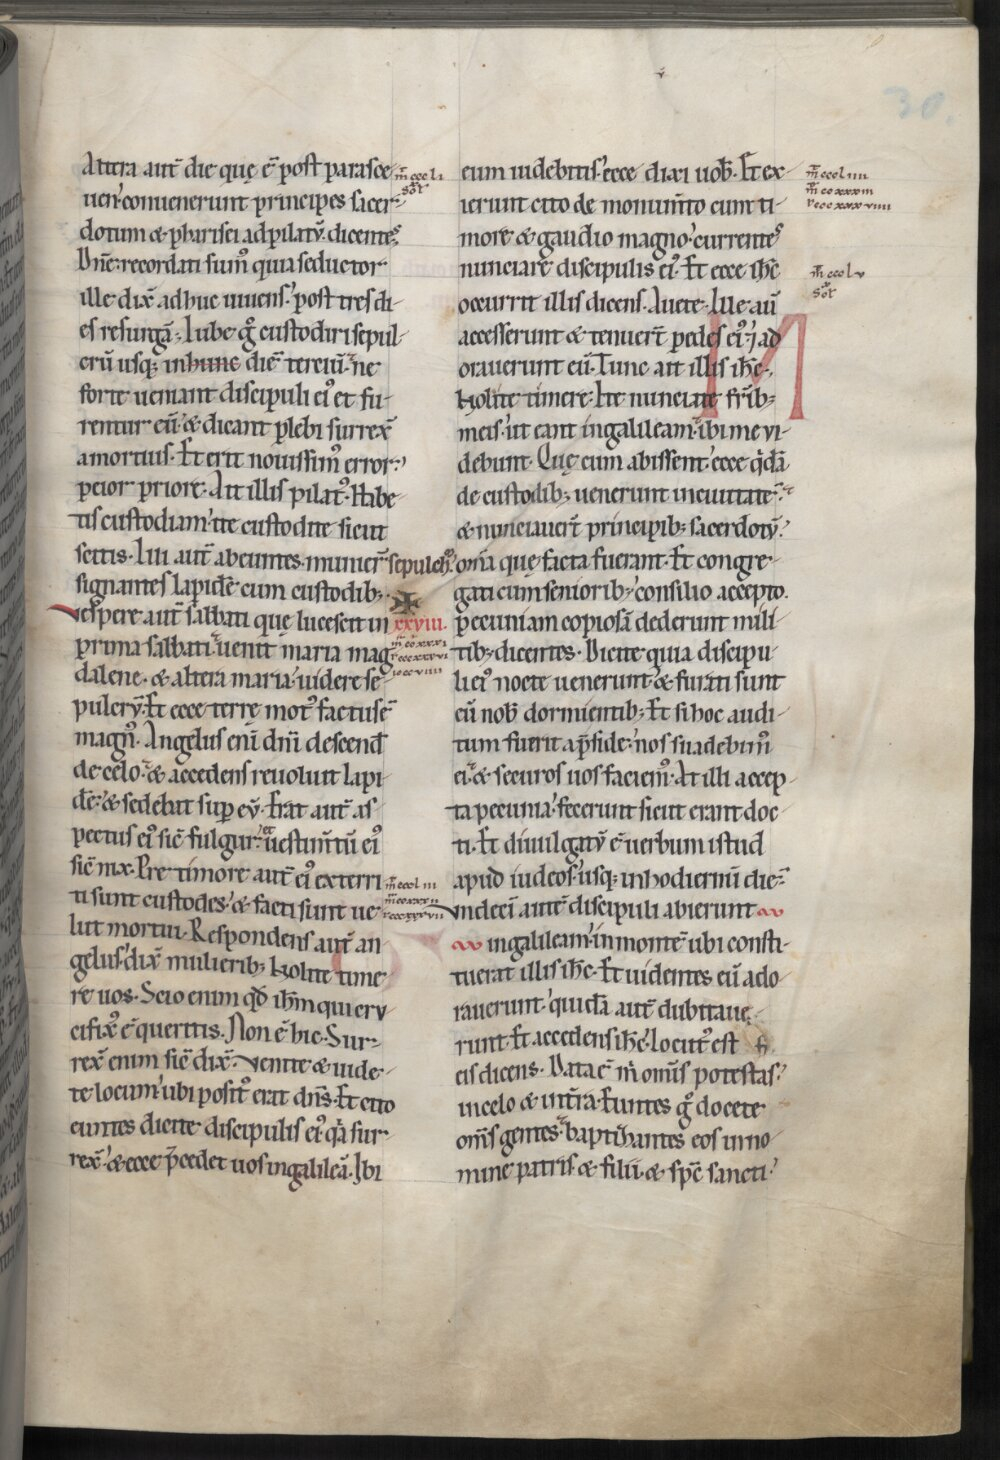 30.
Altera aut̄ die quę ē post parasce
uen conuenerunt principes sacer
dotum & pharisei ad pilatū dicentes
Dn̄e recordati sumꝰ quia seductor
ille dix̄ adhuc uiuens post tres di
es resurgā. Iube ḡ custodiri sepul
crū usq; in hunc diē terciū ne
forte ueniant discipuli eiꝰ et fu
rentur eū & dicant plebi surrex̄
a mortuis. Et erit nouissimꝰ error
peior priore. Ait illis pilatꝰ. Habe
tis custodiam ite custodite sicut
scitis. Illi aut̄ abeuntes munier̄ sepulchꝝ
signantes lapidē cum custodib;
Uespere aut̄ sabbati quę lucescit in xxviii.
prima sabbati uenit maria mag
dalene & altera maria uidere se
pulcrū. Et ecce terrę motꝰ factus ē
magnꝰ. Angelus eni dn̄i descend
de celo & accedens reuoluit lapi
dē & sedebat sup eū. Erat aut̄ as
pectus eiꝰ sic̄ fulgur et uestim̄tū eiꝰ
sic̄ nix. Pre timore aut̄ eiꝰ exterri
ti sunt custodes & facti sunt ue
lut mortui. Respondens aut̄ an
gelus dix̄ mulierib; Nolite time
re uos. Scio enim qd̄ ih̄m qui cru
cifixꝰ ē queritis. Non ē hic. Sur
rex̄ enim sic̄ dix̄. Uenite & uide
te locum ubi positꝰ erat dn̄s. Et cito
euntes dicite discipulis eiꝰ q̄a sur
rex̄ & ecce p̄cedet uos in galileā. Ibi
m̄ cccli
sol
m̄ ccclii
m̄ cccliii
m̄ ccxxxii
r̄ cccxxxviiii
m̄ ccclv
sol
eum uidebitis ecce dixi uob̄. Et ex
ierunt cito de monum̄to cum ti
more & gaudio magno currentes
nunciare discipulis eiꝰ. Et ecce ih̄c
occurrit illis dicens. Auete. Ille aū
accesserunt & tenuer̄t pedes eiꝰ & ad
orauerunt eū. Tunc ait illis ih̄c.
Nolite timere. Ite nunciate fr̄ib;
meis ut eant in galileam ibi me vi
debunt. Quę cum abissent ecce q̄dā
de custodib; uenerunt in ciuitatē
& nunciauer̄t principib; sacerdotū
om̄a quę facta fuerant. Et congre
gati cum seniorib; consilio accepto.
pecuniam copiosā dederunt mili
tib; dicentes. Dicite quia discipu
li eiꝰ nocte uenerunt & furati sunt
eū nob̄ dormientib; Et si hoc audi
tum fuerit a p̄side nos suadebimꝰ
ei & securos uos faciemꝰ. At illi accep
ta pecunia fecerunt sicut erant doc
ti. Et diuulgatū ē uerbum istud
apud iudeos usq; in hodiernū diē
Undeci aut̄ discipuli abierunt
in galileam in montē ubi consti
tuerat illis ih̄c. Et uidentes eū ado
rauerunt quidā aut̄ dubitaue
runt. Et accedens ih̄c locutꝰ est
eis dicens. Data ē m̄ om̄is potestas
in celo & in t̄ra. Euntes ḡ docete
om̄s gentes baptizantes eos in no
mine patris & filii & sp̄c sancti